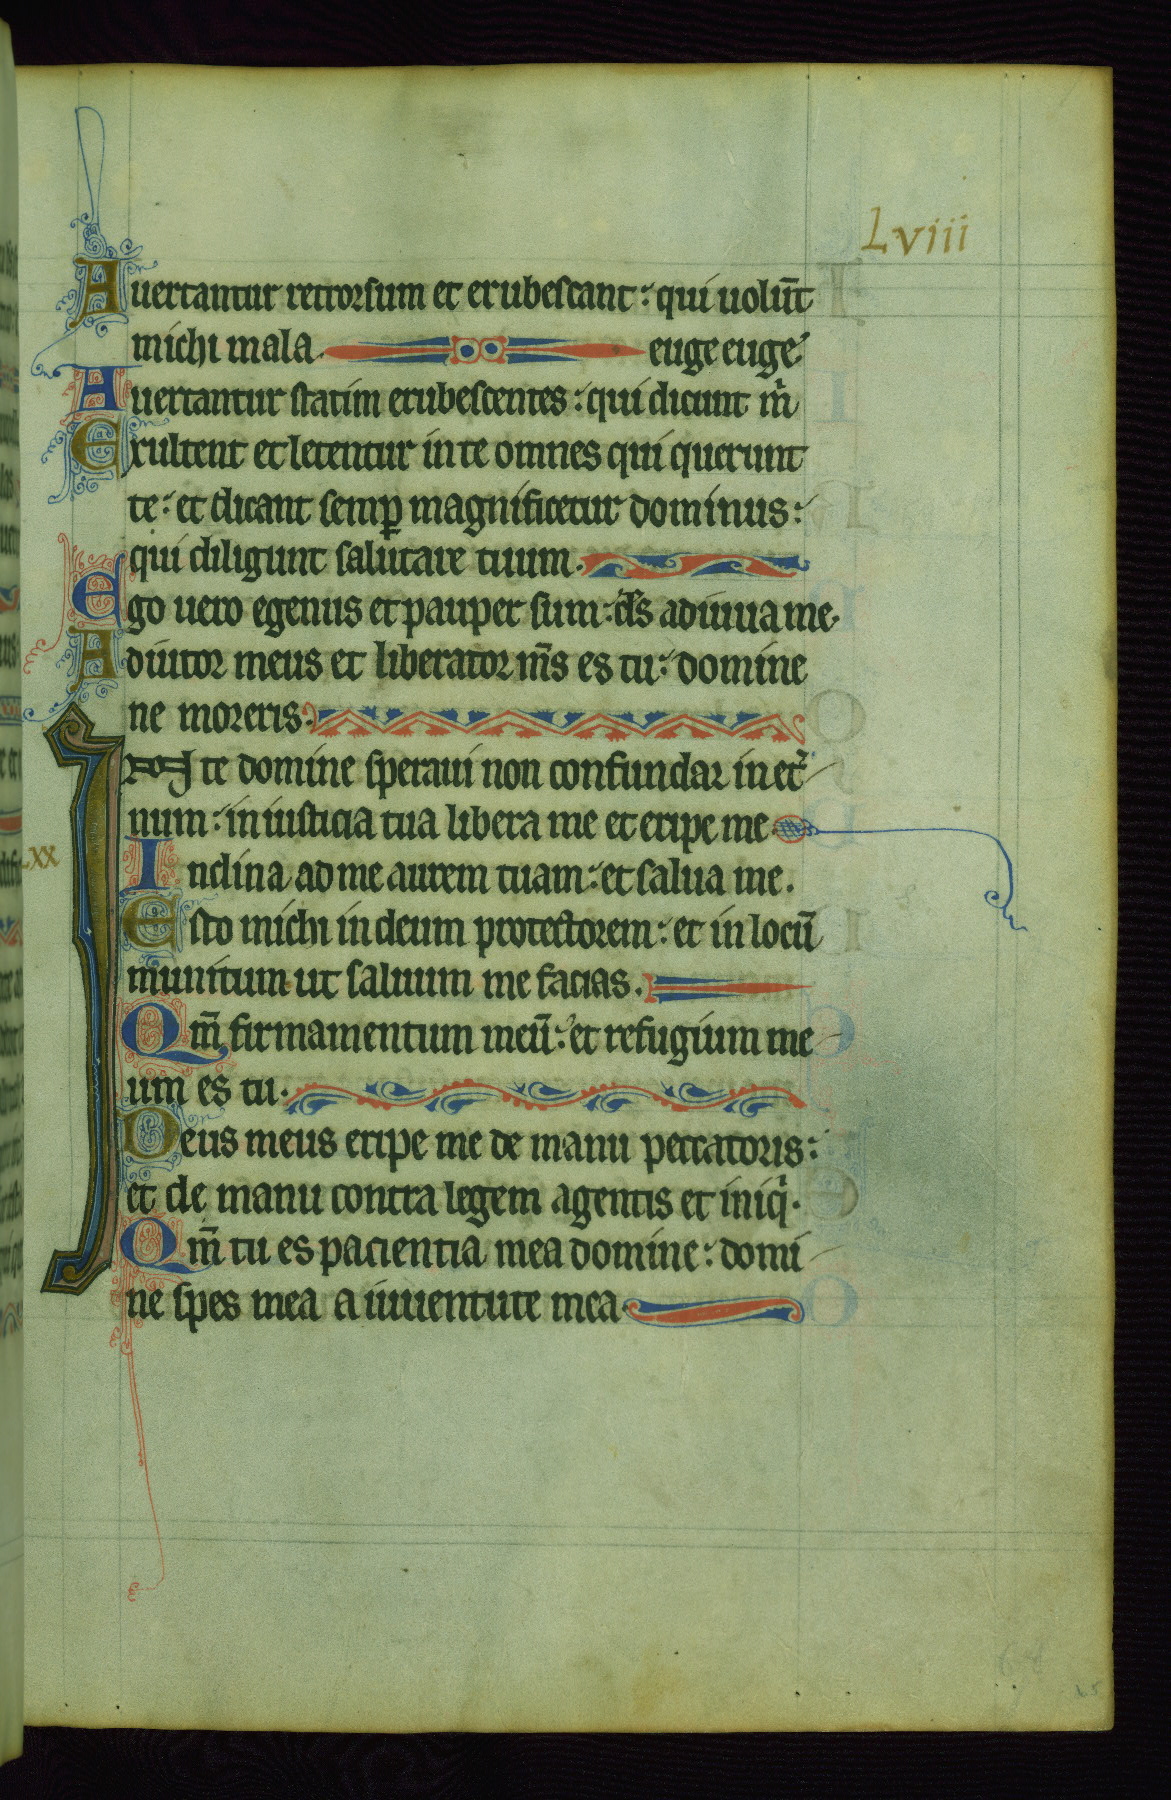 Lviii
Auertantur retrorsum et erubescant: qui uolūt
michi mala. euge euge.
Auertantur statim erubescentes: qui dicunt m̄
Exultent et letentur in te omnes qui querunt
te: et dicant semꝑ magnificetur dominus:
qui diligunt salutare tuum.
Ego uero egenus et pauper sum: d̄s adiuua me.
Adiutor meus et liberator m̄s es tu: domine
ne moreris.
IN te domine speraui non confundar in et̄
num: in iusticia tua libera me et eripe me.
LXX
Inclina ad me aurem tuam: et salua me.
Esto michi in deum protectorem: et in locū
munitum ut saluum me facias.
Qm̄ firmamentum meū: et refugium me
um es tu.
Deus meus eripe me de manu peccatoris:
et de manu contra legem agentis et iniq̄.
Qm̄ tu es paciencia mea domine: domi
ne spes mea a iuuentute mea